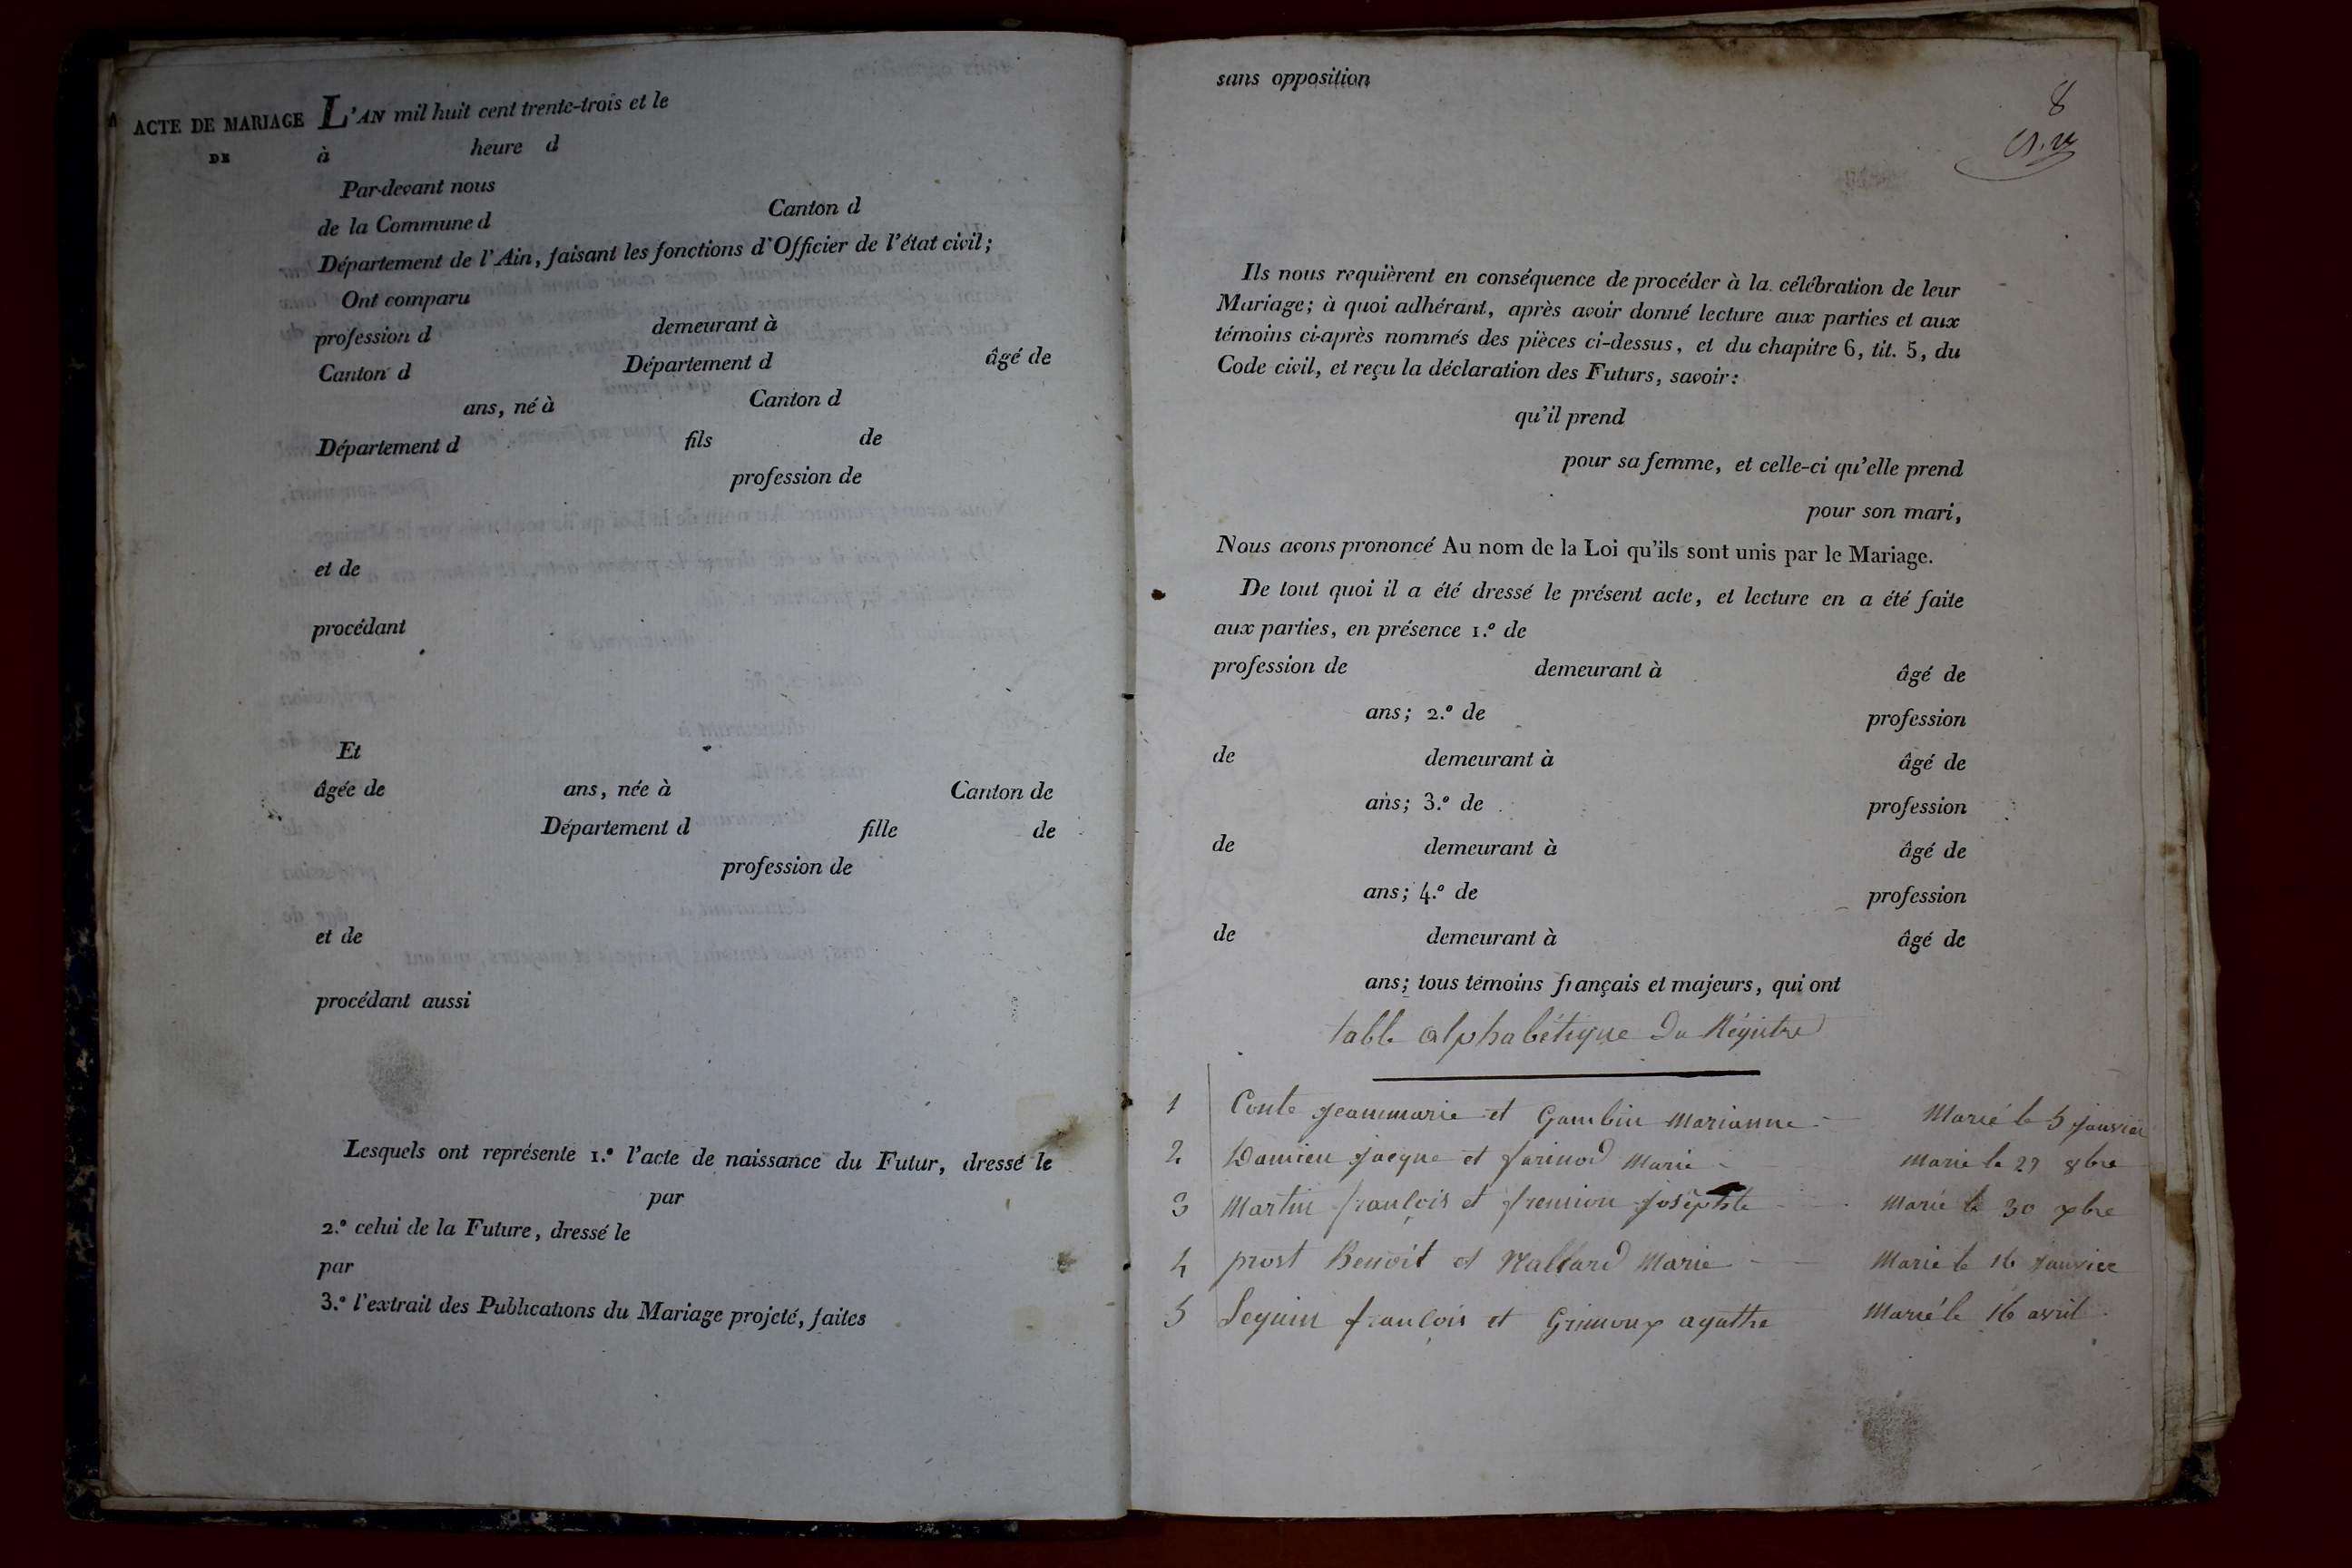 ACTE DE MARIAGE L'AN mil huit cent trente-trois et le
DE à heure d
Par-devant nous
de la Commune d Canton d
Département de l'Ain, faisant les fonctions d'Officier de l'état civil;
Ont comparu
profession d demeurant à
Canton d Département d âgé de
ans, né à Canton d
Département d fils de
profession de
et de
procédant
Et
âgée de ans, née à Canton de
Département d fille de
profession de
et de
procédant aussi
Lesquels ont représenté 1.º l'acte de naissance du Futur, dressé le
par
2.º celui de la Future, dressé le
par
3.º l'extrait des Publications du Mariage projeté, faites
sans opposition
8
Ils nous requièrent en conséquence de procéder à la célébration de leur
Mariage; à quoi adhérant, après avoir donné lecture aux parties et aux
témoins ci-après nommés des pièces ci-dessus, et du chapitre 6, tit. 5, du
Code civil, et reçu la déclaration des Futurs, savoir:
qu'il prend
pour sa femme, et celle-ci qu'elle prend
pour son mari,
Nous avons prononcé Au nom de la Loi qu'ils sont unis par le Mariage.
De tout quoi il a été dressé le présent acte, et lecture en a été faite
aux parties, en présence 1.º de
profession de demeurant à âgé de
ans; 2.º de profession
de demeurant à âgé de
ans; 3.º de profession
de demeurant à âgé de
ans; 4.º de profession
de demeurant à âgé de
ans; tous témoins français et majeurs, qui ont
table alphabétique Du Régistre
1 Conte jeanmarie et Gambin Marianne - Marié le 5 janvier
2 Damien jacque et farinod Marie - marié le 27 8bre
3 Martin françois et fremion josephte - Marié le 30 xbre
4 prost Benoit et Mallard Marie - Marié le 16 janvier
5 Seguin françois et Grimoux agathe Marié le 16 avril